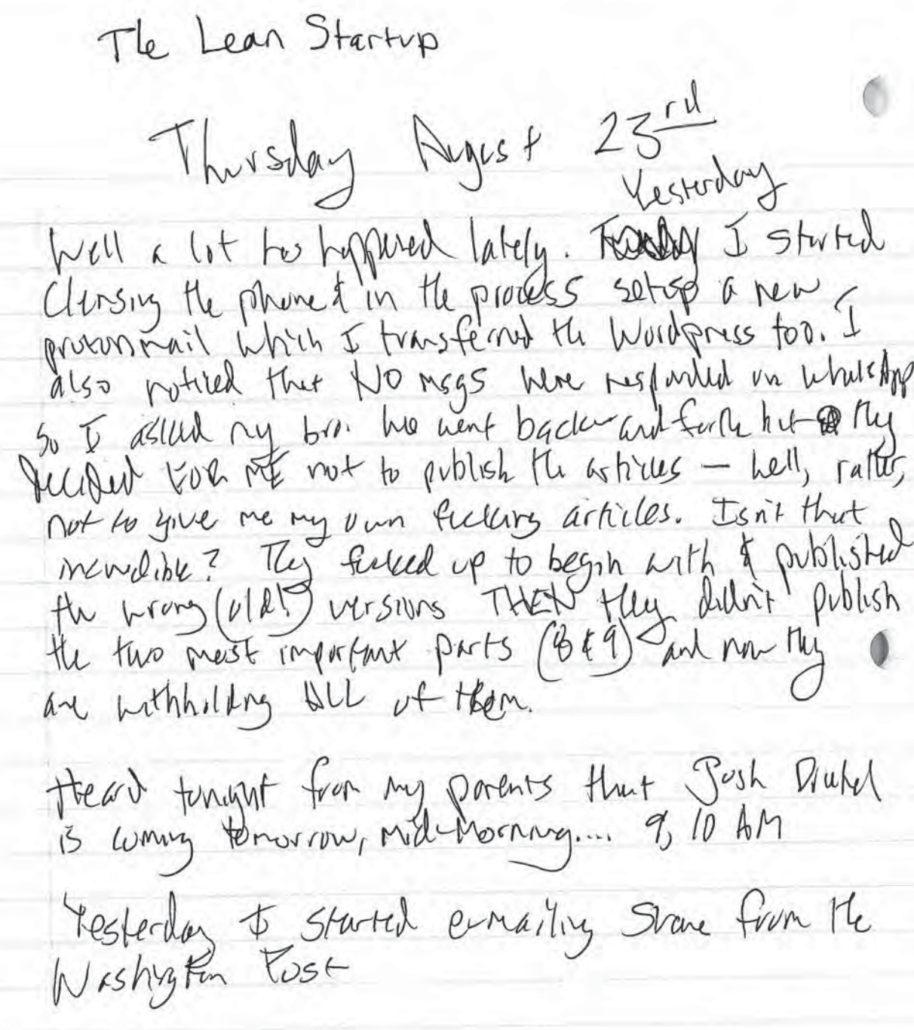 The Lean Startup
Thursday August 23rd
Yesterday
Well a lot has happened lately. I started
Cleansing the phone & in the process setup a new
protonmail which I transferred the Wordpress too. I
also noticed that NO msgs were responded on WhatsApp
so I asked my bro. We went back and forth but they
Decided FOR ME not to publish the articles — well, rather,
not to give me my own fucking articles. Isn't that
incredible? They fucked up to begin with & published
the wrong (old!) versions THEN they didn't publish
the two most important parts (8 & 9) and now they
are withholding ALL of them.
Heard tonight from my parents that Josh
is coming tomorrow, Mid-Morning.... 9, 10 AM
Yesterday I started e-mailing Shane from the
Washington Post